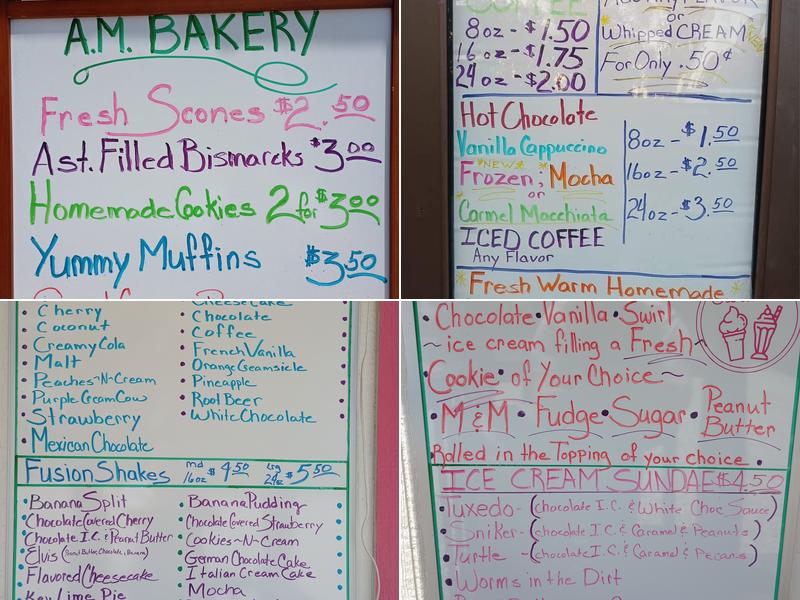 A.M. BAKERY
Fresh Scones $2.50
Ast. Filled Bismarcks $3.00
Homemade Cookies 2 for $3.00
Yummy Muffins $3.50
COFFEE
8oz - $1.50
16 oz - $1.75
24 oz - $2.00
or
Whipped CREAM
For Only .50¢
Hot Chocolate
Vanilla Cappuccino
*NEW*
Frozen; Mocha
or
Carmel Macchiata
ICED COFFEE
Any Flavor
8oz - $1.50
16oz - $2.50
24oz - $3.50
Fresh Warm Homemade
Cherry
Coconut
Creamy Cola
Malt
Peaches-N-Cream
Purple Cream Cow
Strawberry
Mexican Chocolate
Cheesecake
Chocolate
Coffee
French Vanilla
Orange Creamsicle
Pineapple
Root Beer
White Chocolate
Fusion Shakes md 16oz $4.50 lrg 24oz $5.50
Banana Split
Chocolate Covered Cherry
Chocolate I.C. & Peanut Butter
Elvis (Peanut Butter, Chocolate, Banana)
Flavored Cheesecake
Key Lime Pie
Banana Pudding
Chocolate Covered Strawberry
Cookies-N-Cream
German Chocolate Cake
Italian Cream Cake
Mocha
Chocolate • Vanilla • Swirl
~ ice cream filling a Fresh ~
Cookie of Your Choice ~
M&M • Fudge • Sugar • Peanut Butter
Rolled in the Topping of your choice.
ICE CREAM SUNDAE $4.50
Tuxedo - (chocolate I.C. & White Choc Sauce)
Sniker - (chocolate I.C. & Caramel & Peanuts)
Turtle - (chocolate I.C. & Caramel & Pecans)
Worms in the Dirt